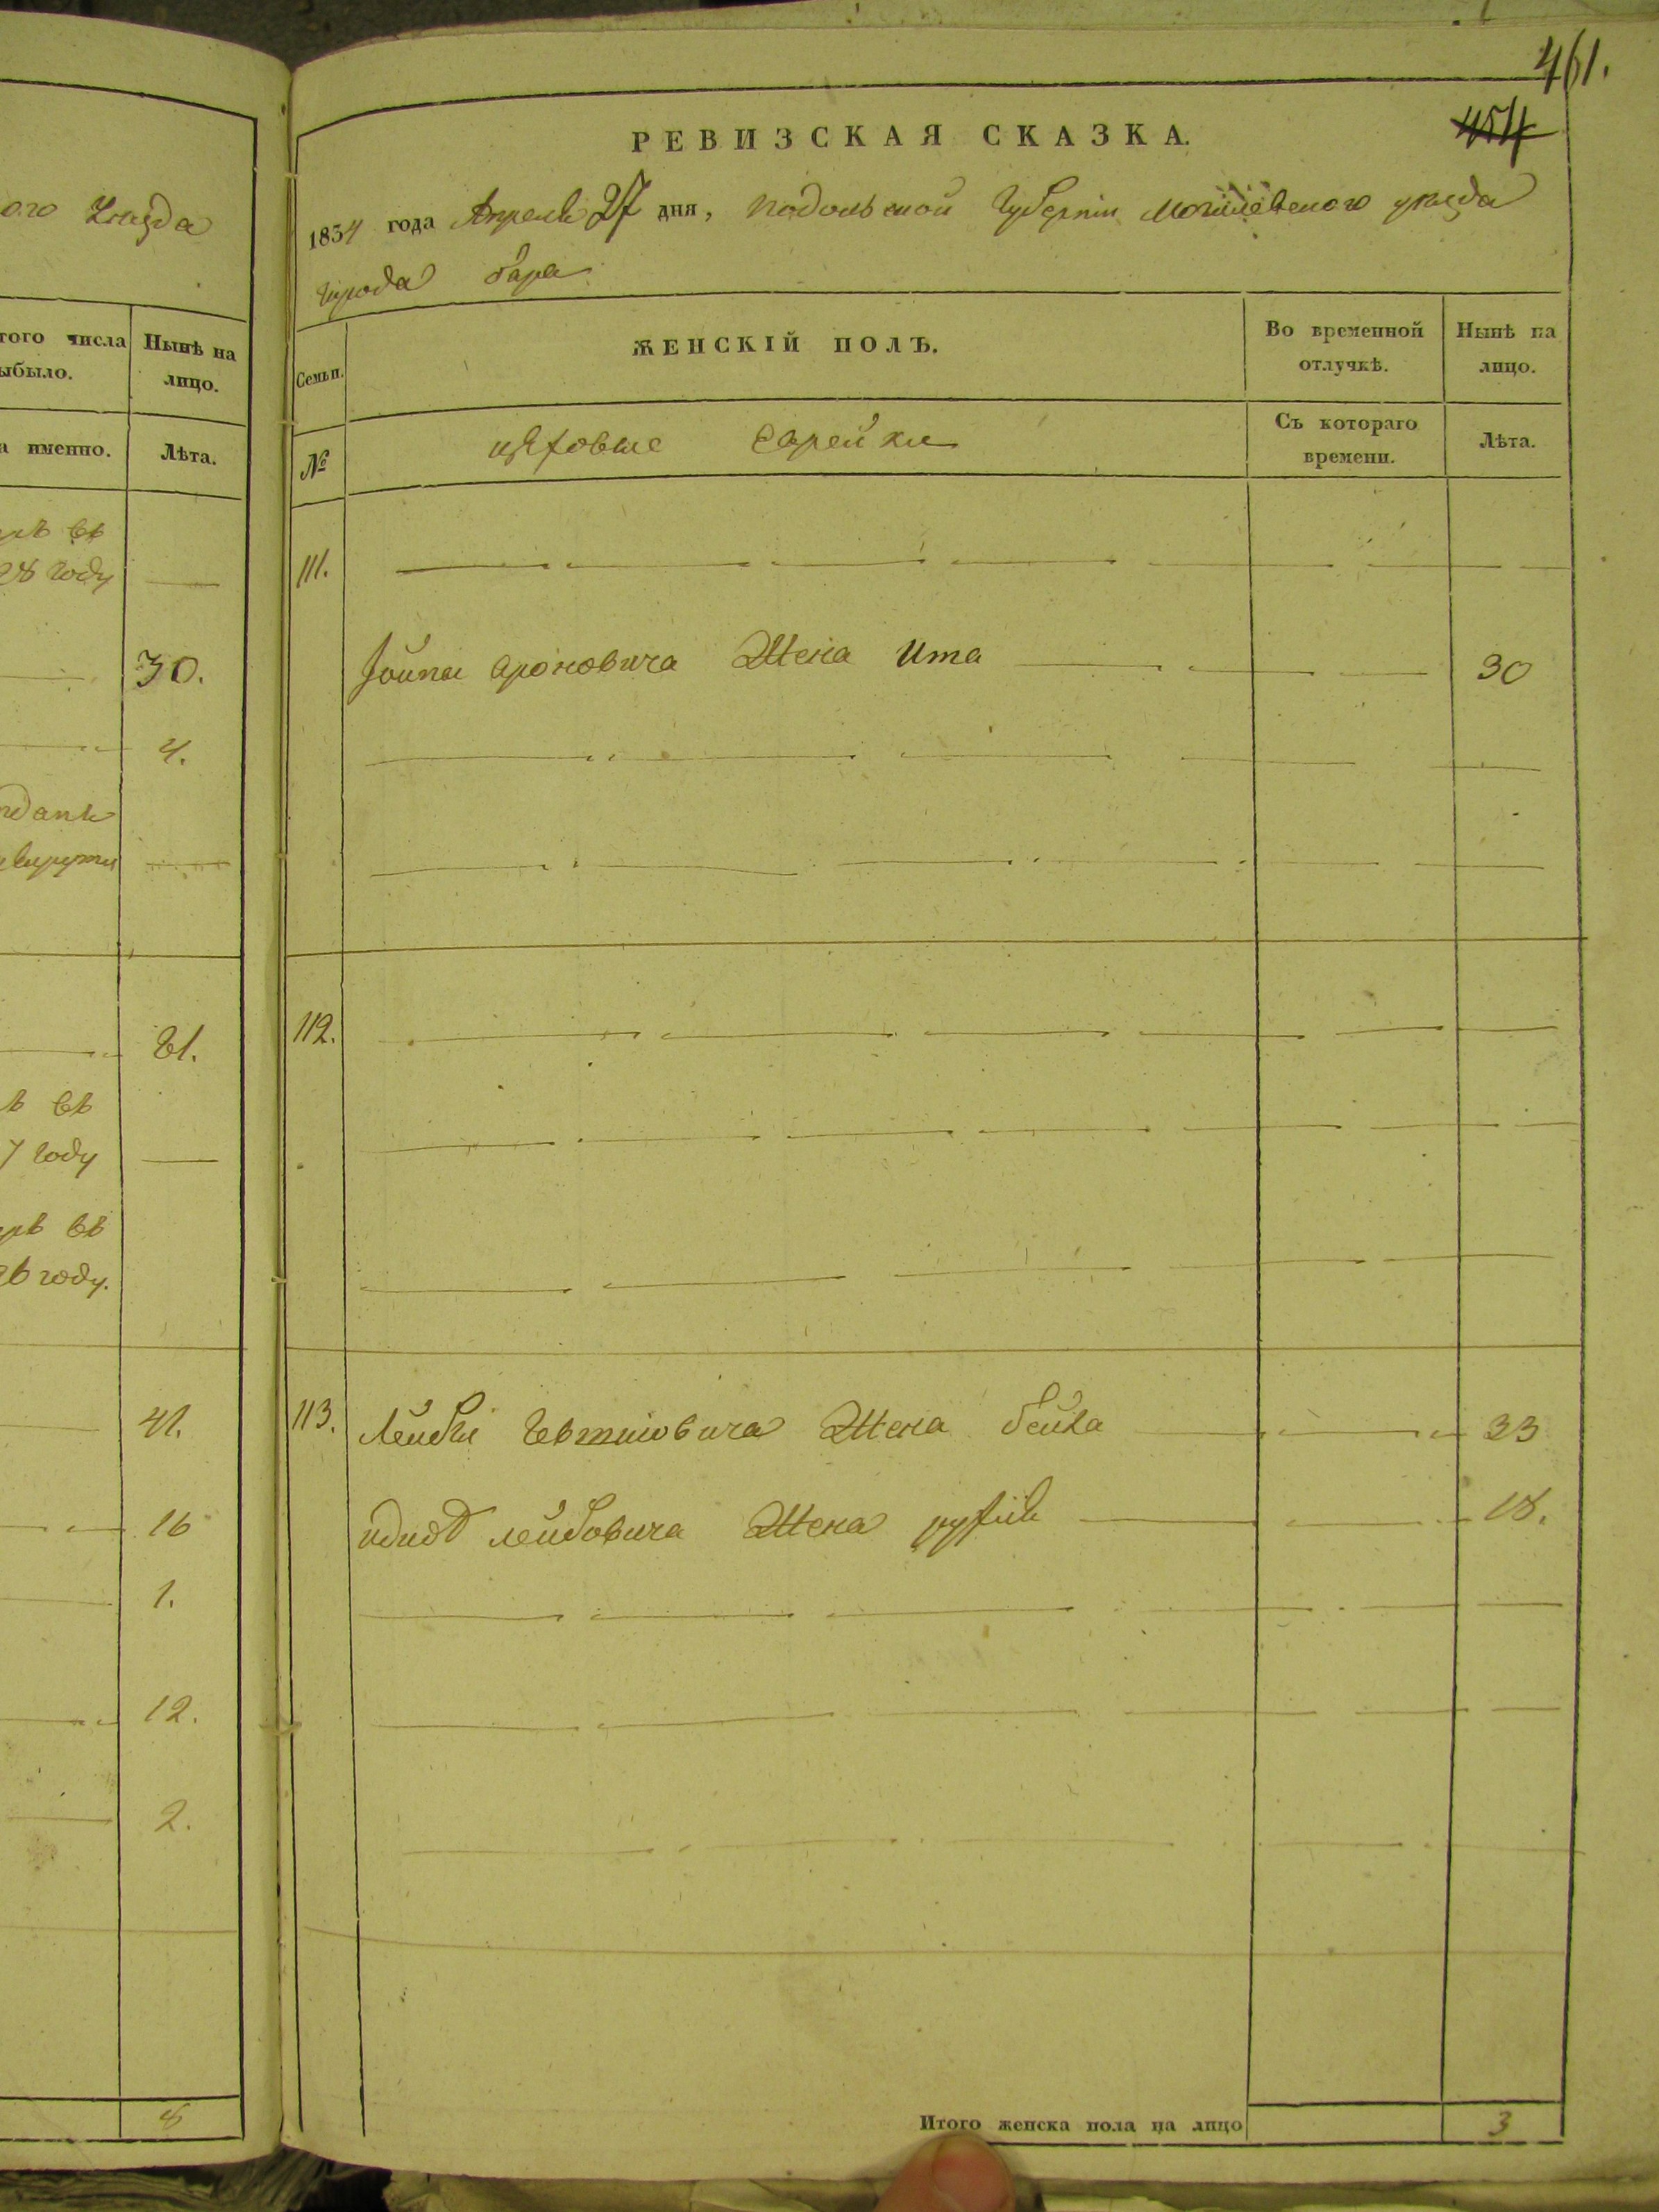 ого Уѣзда
того числа
ыбыло.
Нынѣ на
лицо.
а именно.
Лѣта.
въ
28 году
30.
4.
21.
въ
7 году
въ
26 году.
41.
16
1.
12.
2.
8
461.
454
РЕВИЗСКАЯ СКАЗКА.
1834 года Апреля 27 дня, Подольской Губерніи Могилевского уѣзда
Города Бара
Семьи.
ЖЕНСКІЙ ПОЛЪ.
Во временной
отлучкѣ.
Нынѣ на
лицо.
№
цеховые еврейки
Съ котораго
времени.
Лѣта.
111.
Ароновича Жена Ита 30
112.
113. Лейбы Жена бейла 33
лейбовича Жена рухля 18.
Итого женска пола на лицо 3